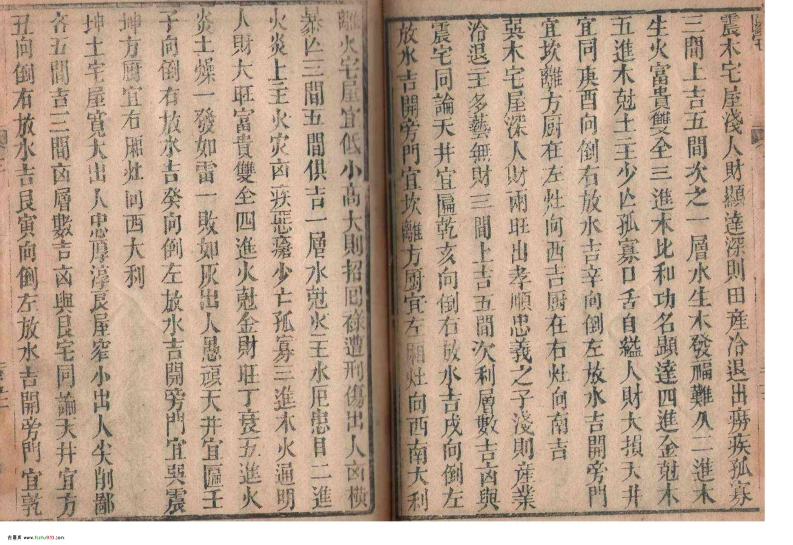 震木宅屋淺人財顯達深則田產冷退出癆疾孤寡
三間上吉五間次之一層水生木發福難久二進木
生火富貴雙全三進木比和功名顯達四進金尅木
五進木尅土主少亡孤寡口舌自縊人財大損天井
宜同庚酉向倒右放水吉辛向倒左放水吉開旁門
宜坎離方厨在左灶向西吉厨在右灶向南吉
巽木宅屋深人財兩旺出孝順忠義之子淺則產業
冷退主多藝無財三間上吉五間次利層數吉凶與
震宅同論天井宜匾乾亥向倒右放水吉戌向倒左
放水吉開旁門宜坎離方厨宜左廂灶向西南大利
離火宅屋宜低小高大則招回祿遭刑傷出人凶橫
暴凶三間五間俱吉一層水尅火主水厄患目二進
火炎上主火灾凶疾惡瘡少亡孤寡三進木火通明
人財大旺富貴雙全四進火尅金財旺丁衰五進火
炎土燥一發如雷一敗如灰出人愚頑天井宜匾壬
子向倒右放水吉癸向倒左放水吉開旁門宜巽震
坤方厨宜右廂灶向西大利
坤土宅屋寬大出人忠厚淳良屋窄小出人尖削鄙
吝五間吉三間凶層數吉凶與艮宅同論天井宜方
丑向倒右放水吉艮寅向倒左放水吉開旁門宜乾